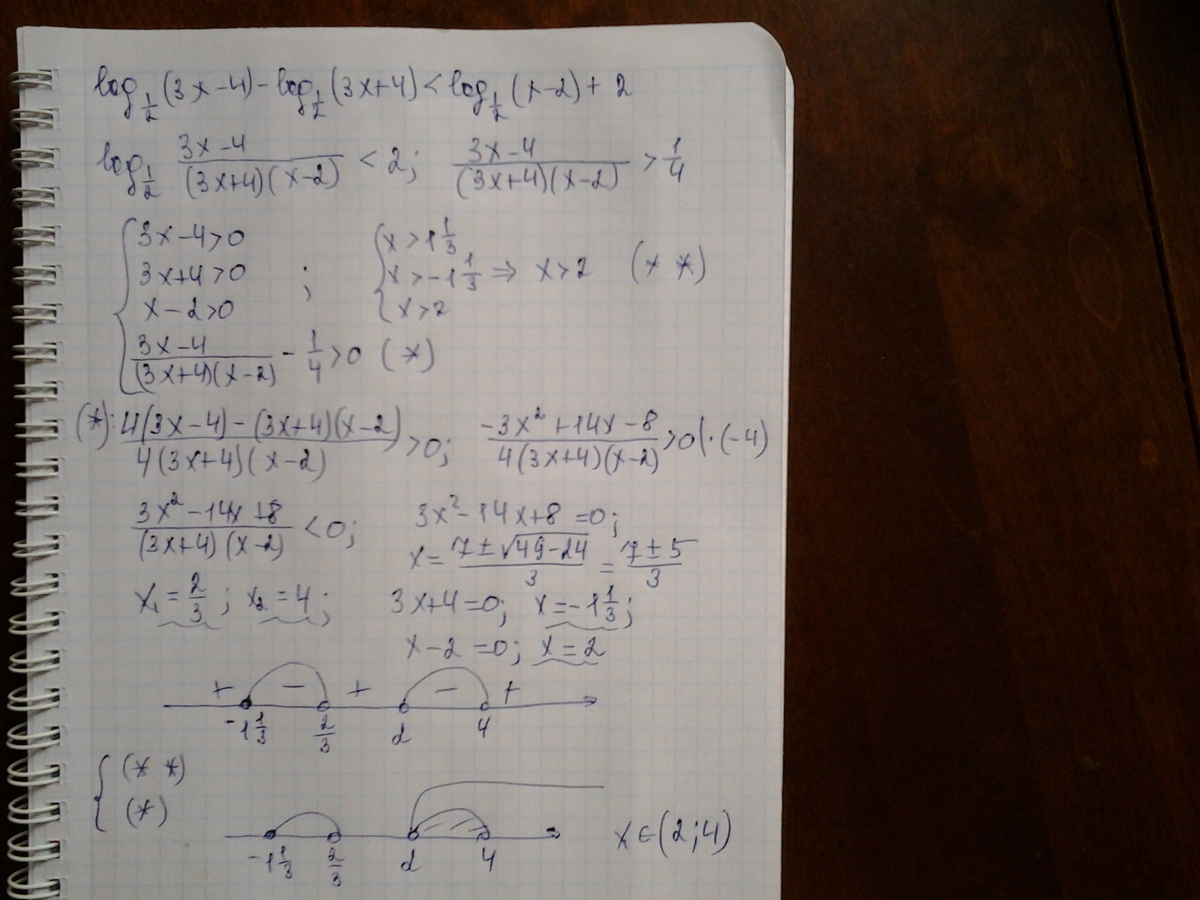 log_{1/2}(3x-4) - log_{1/2}(3x+4) < log_{1/2}(x-2) + 2
log_{1/2} (3x-4)/((3x+4)(x-2)) < 2; (3x-4)/((3x+4)(x-2)) > 1/4
{ 3x-4>0 { x>1 1/3
3x+4>0 ; x>-1 1/3 ⇒ x>2 (* *)
x-2>0 x>2
(3x-4)/((3x+4)(x-2)) - 1/4 >0 (*)
(*): (4(3x-4)-(3x+4)(x-2))/(4(3x+4)(x-2)) >0; (-3x²+14x-8)/(4(3x+4)(x-2)) >0 |·(-4)
(3x²-14x+8)/((3x+4)(x-2)) <0; 3x²-14x+8=0;
x = (7±√(49-24))/3 = (7±5)/3
x₁ = 2/3; x₂ = 4; 3x+4=0; x=-1 1/3;
x-2=0; x=2
+ - + - +
-1 1/3 2/3 2 4
{ (* *)
(*)
-1 1/3 2/3 2 4 x∈(2;4)